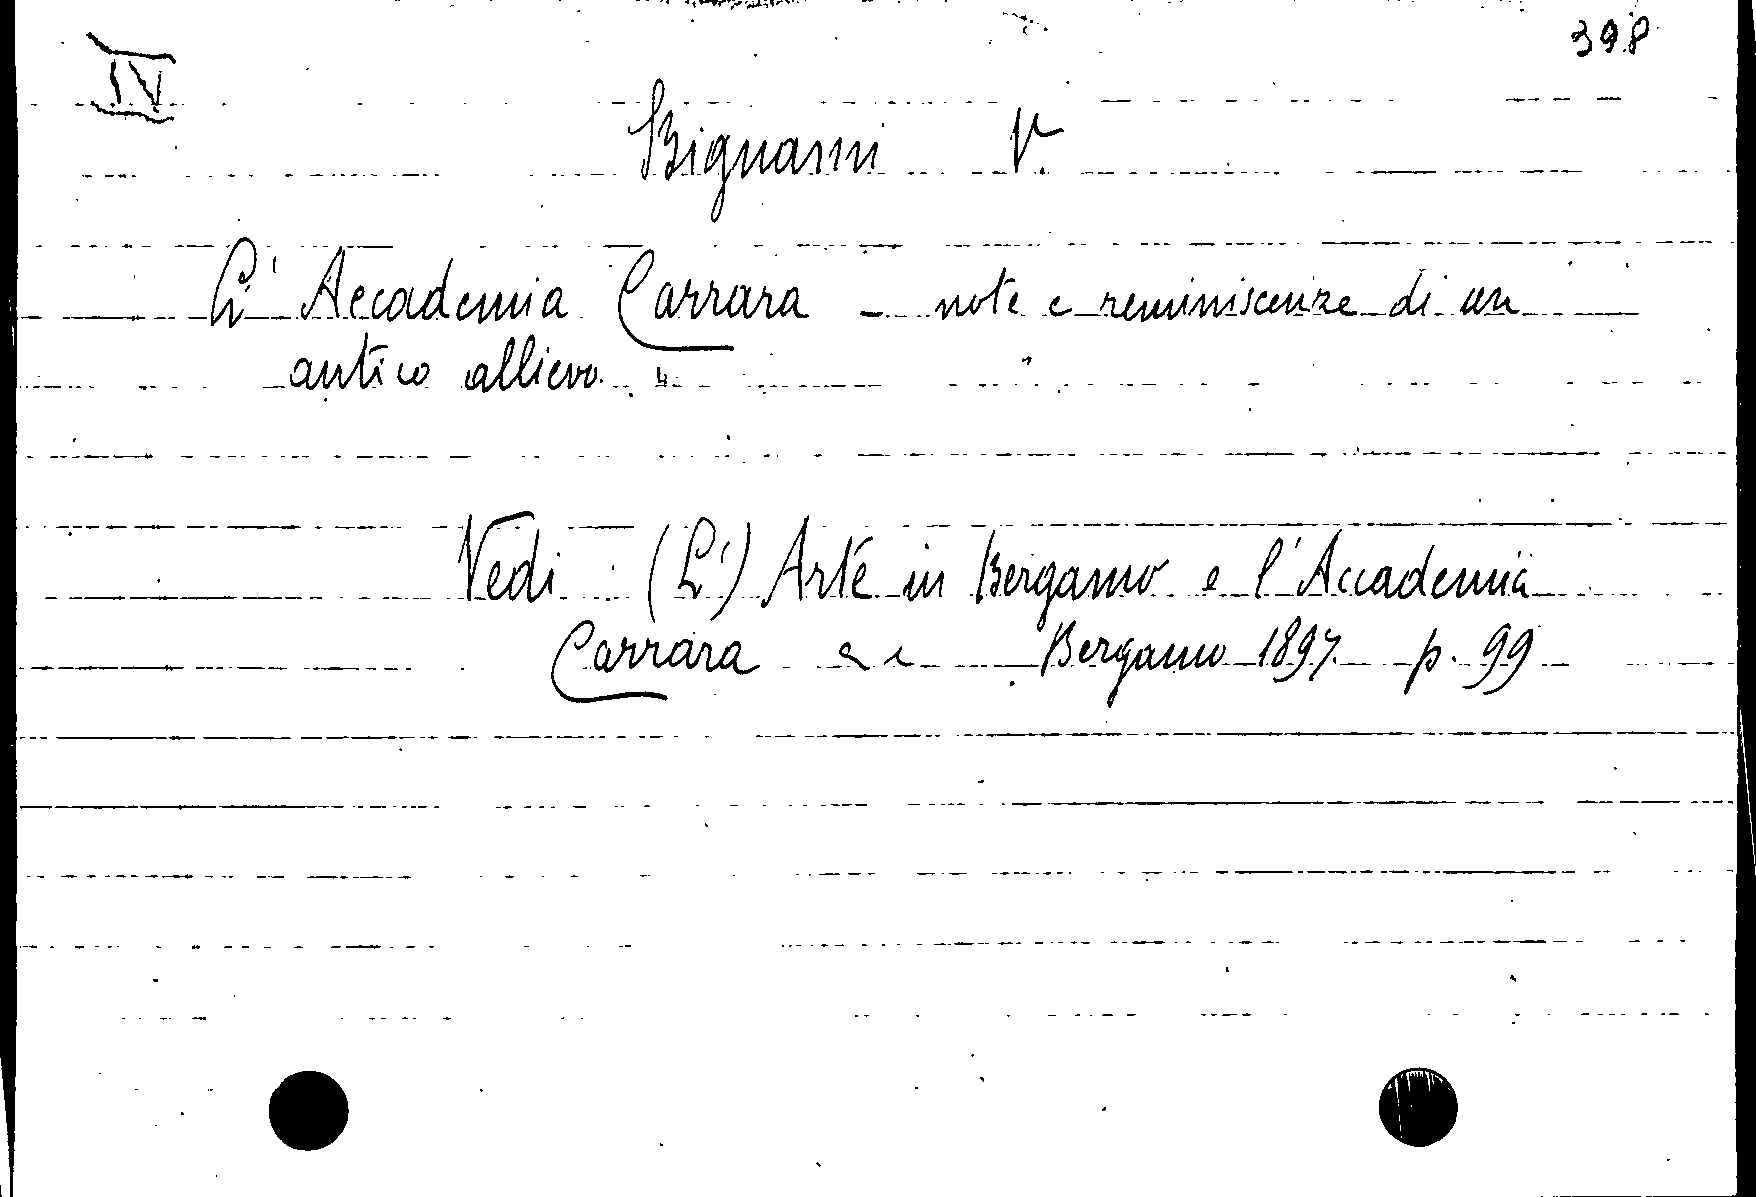 398
IV
Bignami V.
L'Accademia Carrara - note e reminiscenze di un
antico allievo.
Vedi (L') Arte in Bergamo e l'Accademia
Carrara Bergamo 1897 p. 99